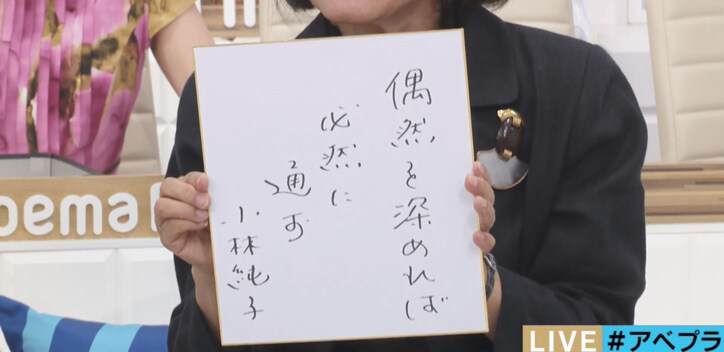 偶然を深めれば
必然に
通ず
小林純子
bema
LIVE #アベプラ